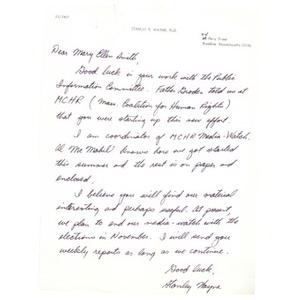 STANLEY R. WAYNE, PH.D.
Perry Street
Brookline, Massachusetts
Dear Mary Ellen Smith,
Good luck in your work with the Public
Information Committee. Father Drodes told us at
MCHR (Mass Coalition for Human Rights)
that you were starting up this new effort.
I am coordinator of MCHR Media-Watch.
Al McMahill knows how we got started
this summer and the rest is on paper and
enclosed.
I believe you will find our material
interesting and perhaps useful. At present,
we plan to end our media-watch with the
elections in November. I will send you
weekly reports as long as we continue.
Good luck,
Stanley Wayne